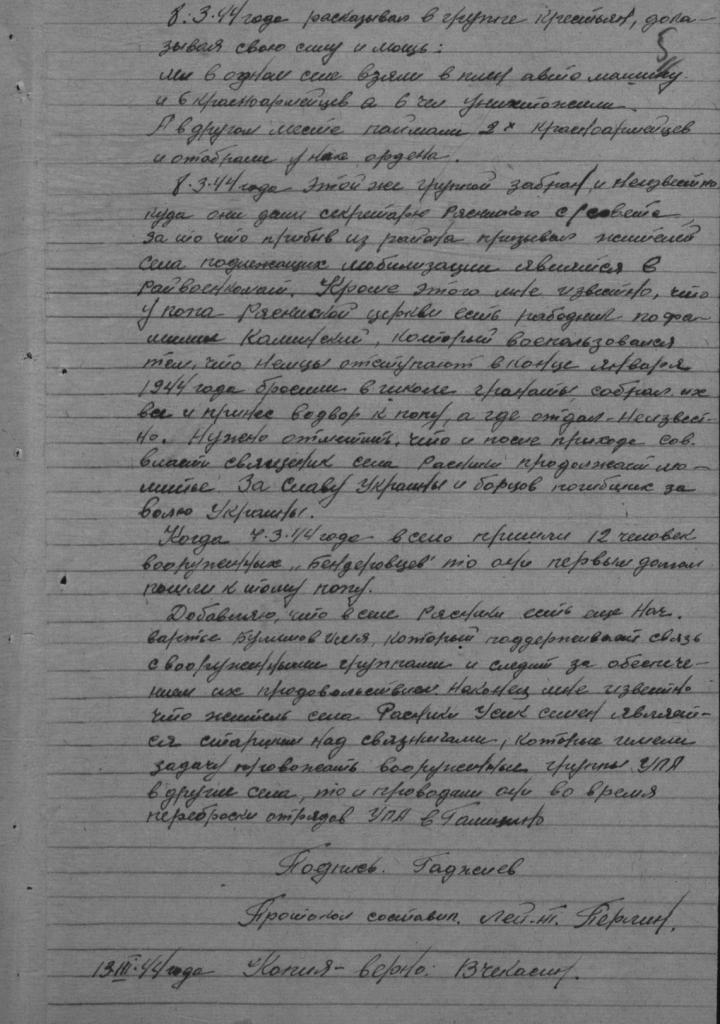 8.3.44 года расказывал в группе крестьян, дока-
5
зывая свою силу и мощь:
мы в одном селе взяли в плен авто машину
и 6 красноармейцев а 6 чел уничтожили.
А в другом месте поймали 2х красноармейцев
и отобрали у них ордена.
8.3.44 года этой же группой забран и неизвестно
куда они дели секретарю Рясникого с/совета,
за то что прибыв из района призывал жителей
села подлежащих мобилизации явится в
Райвоенкомат. Кроме этого мне известно, что
у попа Ряснисской церкви есть работник по фа-
милии Каминский, который воспользовался
тем, что немцы отступают в конце января
1944 года бросили в школе гранаты, собрал их
все и принес во двор к попу, а где отдал - неизвест-
но. Нужно отметить, что и после прихода сов.
власти священик села Расники продолжает мо-
литье За Славу Украины и борцов погибших за
волю Украины.
Когда 4.3.44 года в село пришли 12 человек
вооруженных „Бендеровцев" то они первым долгом
пошли к этому попу.
Добавляю, что в селе Рясники есть еще нач.
который поддерживает связь
с вооруженными группами и следит за обеспече-
нием их продовольствием. Наконец мне известно
что житель села Расники Усик Семен являет-
ся старшим над связничами, которые имели
задачу провожать вооруженные группы УПА
в другие села, то и проводали они во время
переброски отрядов УПА в Галицию
Подпись. Гаджиев
Протокол составил. Лей-т. Перлин.
13.III.44 года Копия - верно: